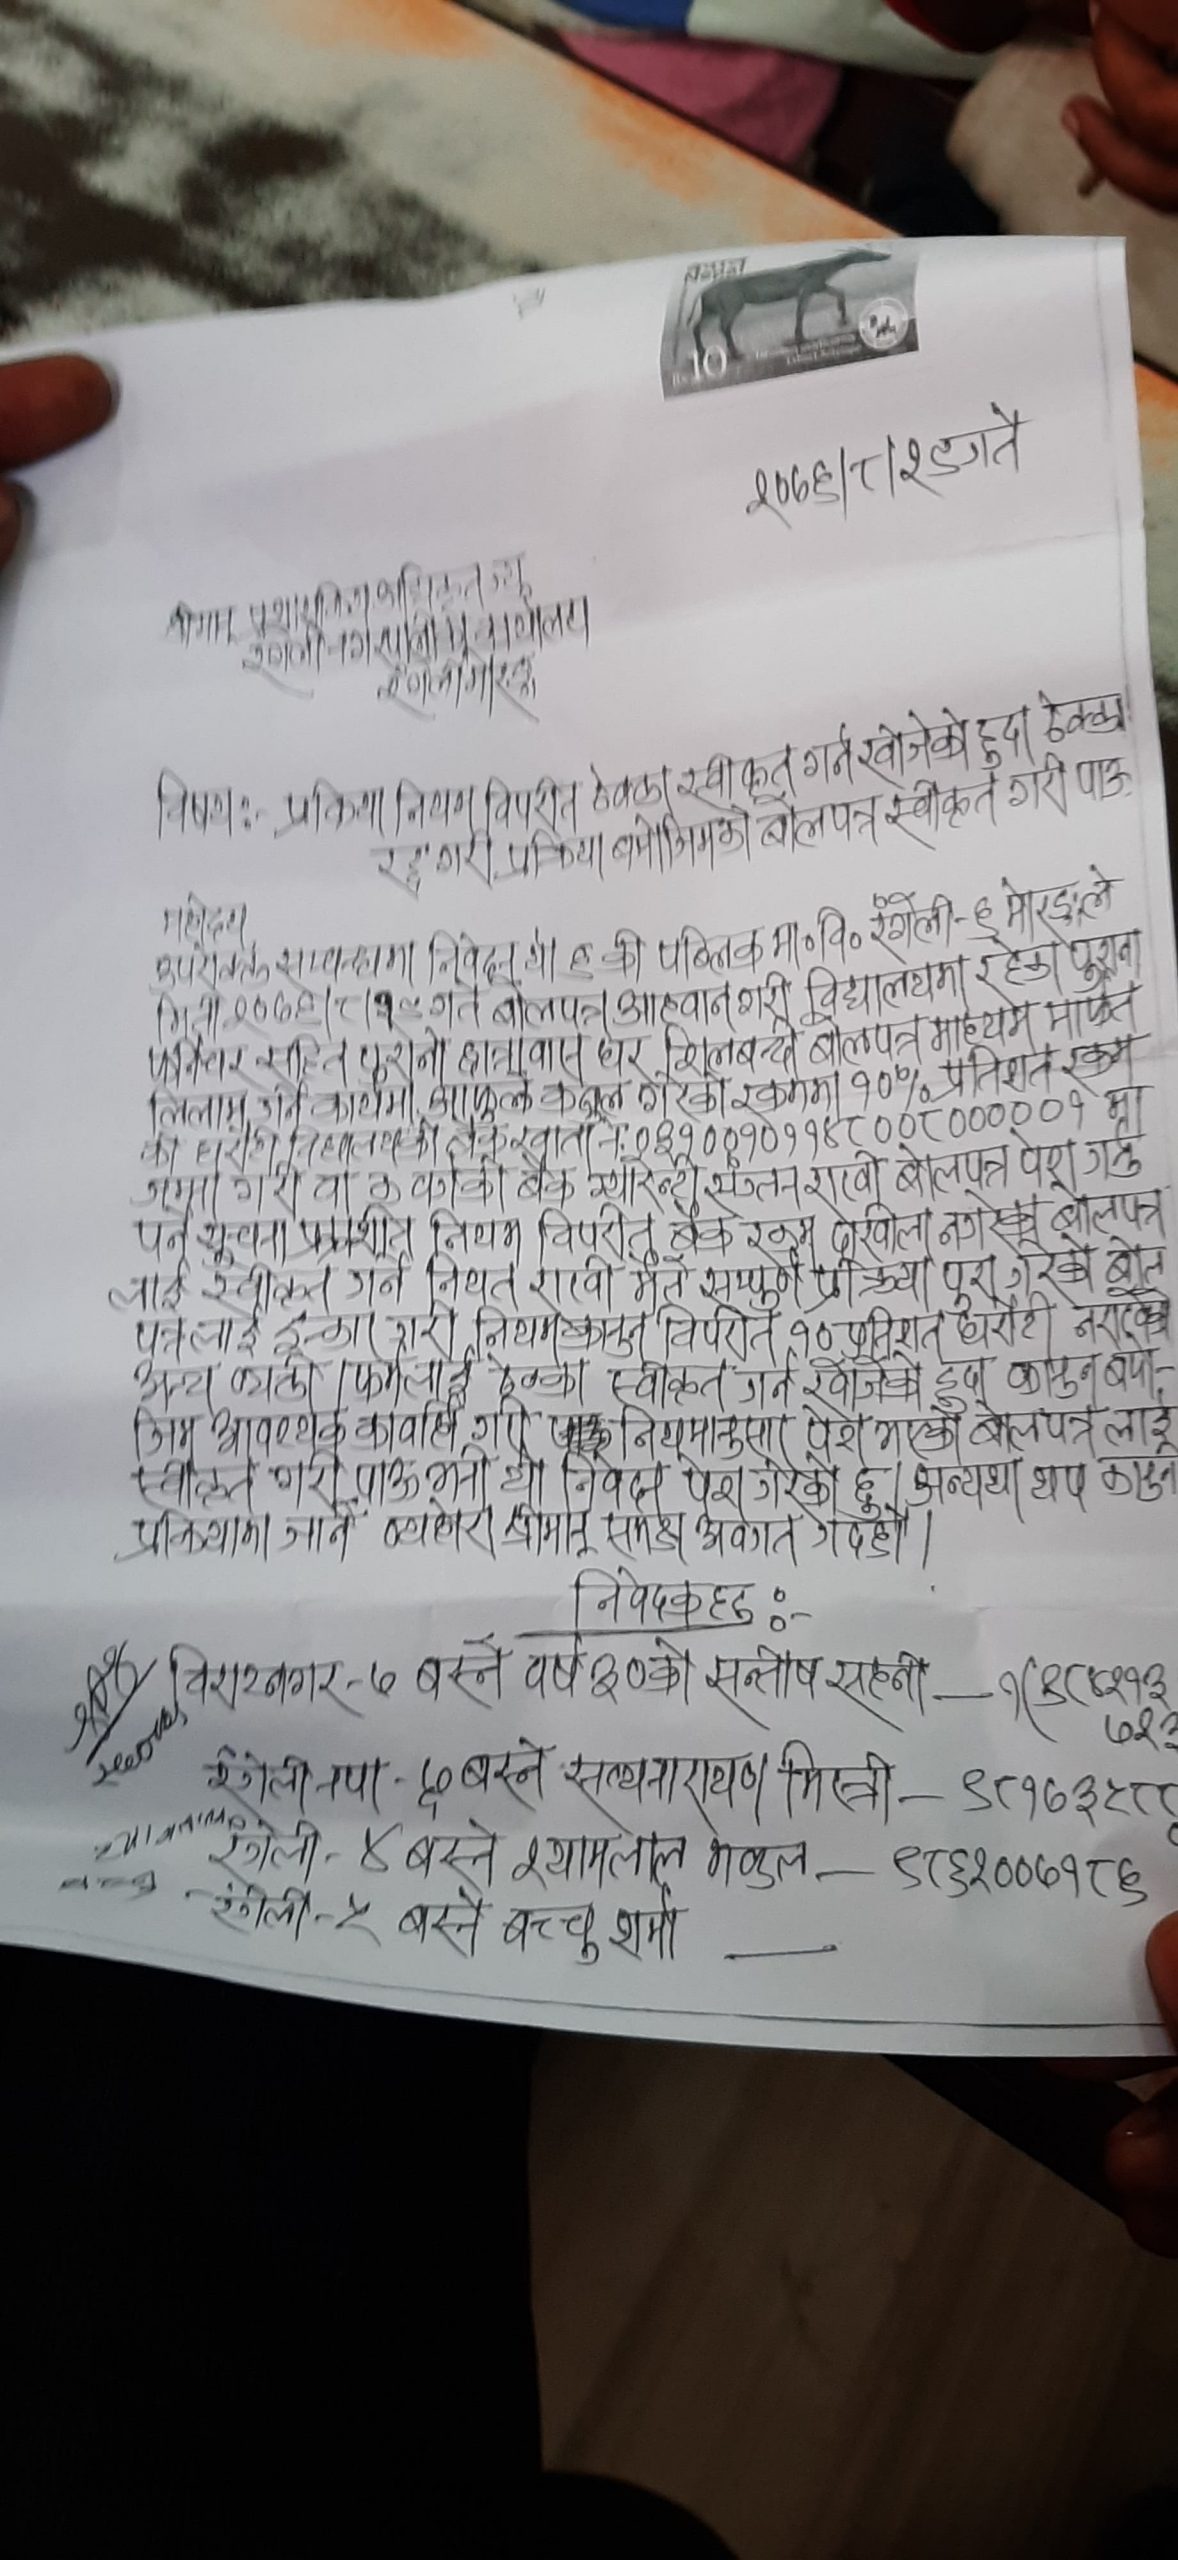 10
२०७६/८/२९गते
श्रीमान् प्रशासकिय अधिकृत ज्यू
रंगेली नगरपालिका कार्यालय
रंगेली मोरङ्ग
विषय:- प्रकिया नियम विपरीत ठेक्का स्वीकृत गर्न खोजेको हुदा ठेक्का
रद्द गरी प्रक्रिया बमोजिमको बोलपत्र स्वीकृत गरी पाऊ
महोदय
उपरोक्त सम्बन्धमा निवेदन यो छ की पब्लिक मा॰वि॰ रंगेली-६ मोरङ्गले
मिती २०७६/८/१९ गते बोलपत्र आहवान गरी विद्यालयमा रहेका पुराना
फर्निचर सहित पुरानो छात्रावास घर शिलबन्दी बोलपत्र माध्यम मार्फत
लिलाम गर्ने कार्यमा आफुले कबुल गरेको रकममा १०% प्रतिशत रकम
को धरौटी विद्यालयको बैंक खाता नं: ०३१००१०११४८००८०००००१ मा
जम्मा गरी वा क वर्गको बैंक ग्यारेन्टी संलग्न राखी बोलपत्र पेश गर्नु
पर्ने सूचना प्रकाशीत नियम विपरीत बैंक रकम दाखीला नगरेको बोलपत्र
लाई स्वीकृत गर्न नियत राखी मैले सम्पुर्ण प्रक्रिया पुरा गरेको बोल
पत्रलाई इन्कार गरी नियम कानुन विपरीत १० प्रतिशत धरौटी नराखेको
अन्य व्यक्ती/फर्मलाई ठेक्का स्वीकृत गर्न खोजेको हुदा कानुन बमो-
जिम आवश्यक कार्वाही गरी नियमानुसार पेश भएको बोलपत्र लाई
स्वीकृत गरी पाऊ भनी यो निवेदन पेश गरेको छु। अन्यथा थप कानुन
प्रक्रियामा जाने व्यहोरा श्रीमान् समक्ष अवगत गर्दछौ।
निवेदकहरु:-
विराटनगर-७ बस्ने वर्ष ३०को सन्तोष सहनी —
७१३
रंगेली नपा - ७ बस्ने सत्यनारायण मिस्त्री — ९८१७३५८८
रंगेली - ४ बस्ने श्यामलाल मण्डल — ९८६२००७१८६
रंगेली-५ बस्ने बच्चु शर्मा —